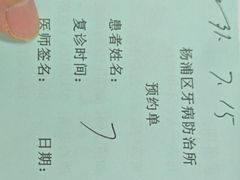 杨浦区牙病防治所
预约单
患者姓名:
复诊时间: 7
医师签名: 日期:
7.15